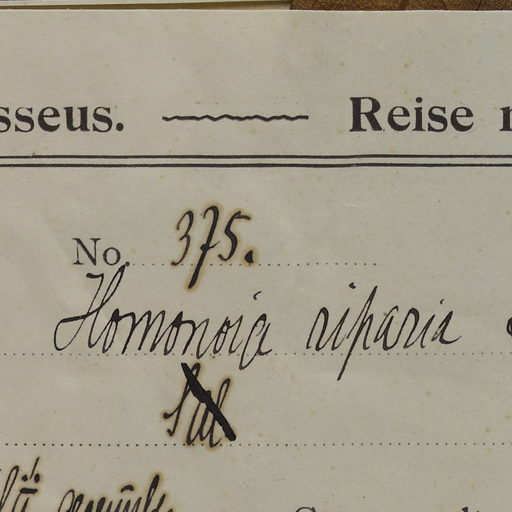 sseus. Reise
No. 375.
Homonoia riparia